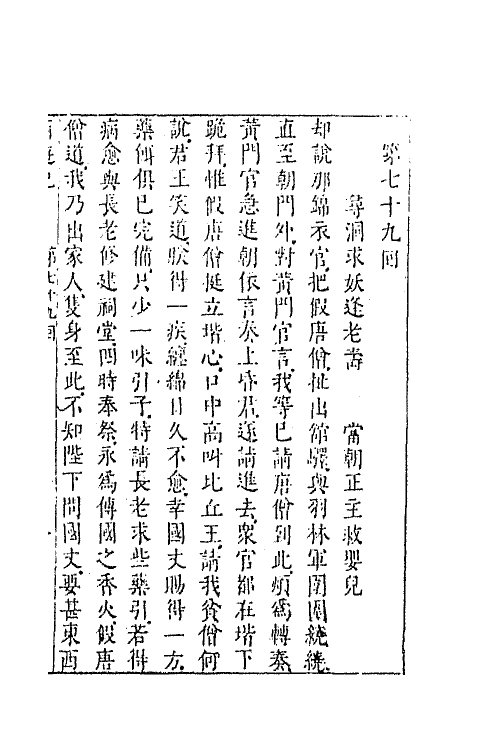 第七十九回
尋洞求妖逢老壽　當朝正主救嬰兒
却說那錦衣官把假唐僧扯出館驛與羽林軍圍圍繞繞
直至朝門外對黃門官言我等已請唐僧到此煩爲轉奏
黃門官急進朝依言奏上昏君遂請進去衆官都在堦下
跪拜惟假唐僧挺立堦心口中高叫比丘王請我貧僧何
說君王笑道朕得一疾纏綿日久不愈幸國丈賜得一方
藥餌俱已完備只少一味引子特請長老求些藥引若得
病愈與長老修建祠堂四時奉祭永爲傳國之香火假唐
僧道我乃出家人隻身至此不知陛下問國丈要甚東西
第七十九回